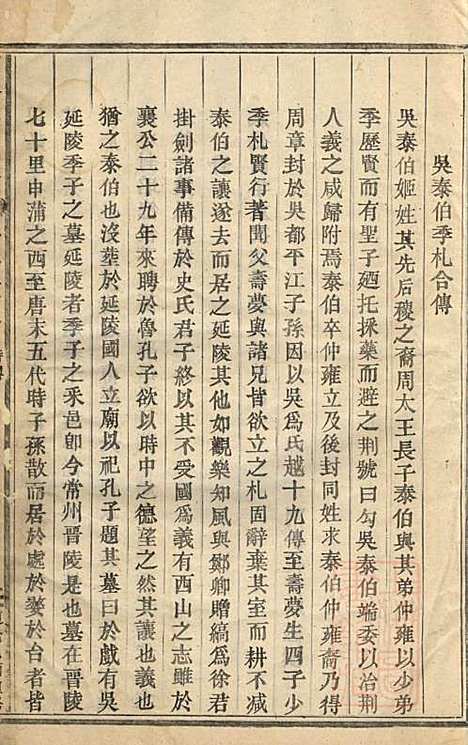 吳泰伯季札合傳
吳泰伯姬姓其先后稷之裔周太王長子泰伯與其弟仲雍以少弟
季歷賢而有聖子廼托採藥而避之荆號曰勾吳泰伯端委以治荆
人義之咸歸附焉泰伯卒仲雍立及後封同姓求泰伯仲雍裔乃得
周章封於吳都平江子孫因以吳為氏越十九傳至壽夢生四子少
季札賢行著聞父壽夢與諸兄皆欲立之札固辭棄其室而耕不减
泰伯之讓遂去而居之延陵其他如觀樂知風與鄭卿贈縞為徐君
掛劍諸事備傳於史氏君子終以其不受國為義有西山之志雖於
襄公二十九年來聘於魯孔子欲以時中之德望之然其讓也亦
猶之泰伯也沒葬於延陵國人立廟以祀孔子題其墓曰於戲有吳
延陵季子之墓延陵者季子之釆邑卽今常州晋陵是也墓在晋陵
七十里申蒲之西至唐末五代時子孫散而居於處於婺於台者皆